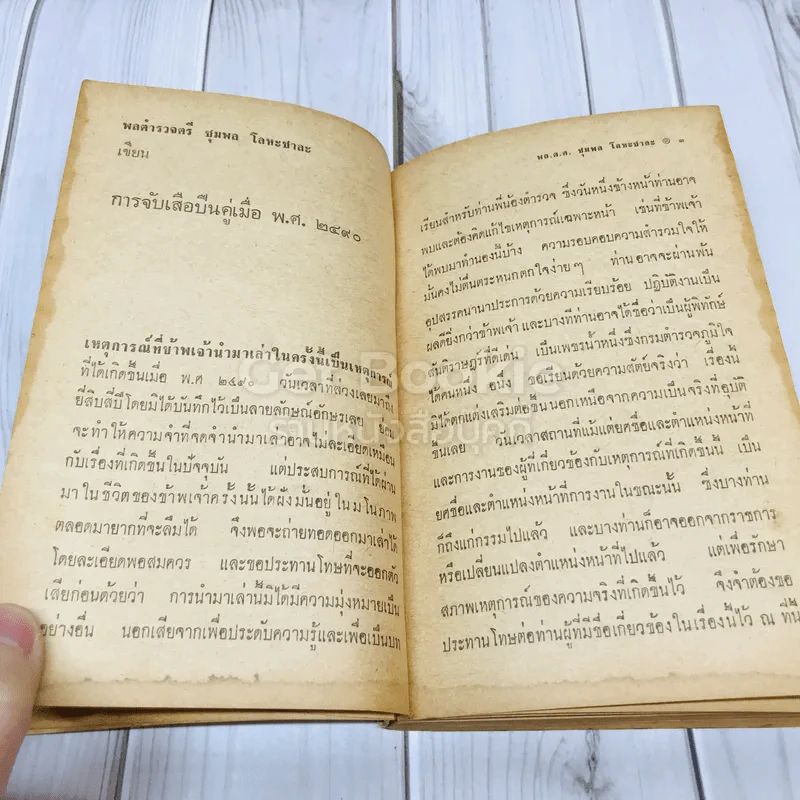 พลตำรวจตรี ชุมพล โลหะชาละ
เขียน
การจับเสือปืนคู่เมื่อ พ.ศ. ๒๔๙๐
เหตุการณ์ที่ข้าพเจ้านำมาเล่าในครั้งนี้เป็นเหตุการณ์
ที่ได้เกิดขึ้นเมื่อ พ.ศ ๒๔๙๐ วันเวลาที่ล่วงเลยมาถึง
ยี่สิบสี่ปีโดยมิได้บันทึกไว้เป็นลายลักษณ์อักษรเลย
จะทำให้ความจำที่จดจำนำมาเล่าอาจไม่ละเอียดเหมือน
กับเรื่องที่เกิดขึ้นในปัจจุบัน แต่ประสบการณ์ที่ได้ผ่าน
มาในชีวิตของข้าพเจ้าครั้งนั้นได้ฝังมั่นอยู่ในมโนภาพ
ตลอดมายากที่จะลืมได้ จึงพอจะถ่ายทอดออกมาเล่าได้
โดยละเอียดพอสมควร และขอประทานโทษที่จะออกตัว
เสียก่อนด้วยว่า การนำมาเล่านี้มิได้มีความมุ่งหมายเป็น
อย่างอื่น นอกเสียจากเพื่อประดับความรู้และเพื่อเป็นบท
พล.ต.ต. ชุมพล โลหะชาละ ๏ ๓
เรียนสำหรับท่านพี่น้องตำรวจ ซึ่งวันหนึ่งข้างหน้าท่านอาจ
พบและต้องคิดแก้ไขเหตุการณ์เฉพาะหน้า เช่นที่ข้าพเจ้า
ได้พบมาทำนองนี้บ้าง ความรอบคอบความสำรวมใจให้
มั่นคงไม่ตื่นตระหนกตกใจง่ายๆ ท่านอาจจะผ่านพ้น
อุปสรรคนานาประการด้วยความเรียบร้อย ปฏิบัติงานเป็น
ผลดียิ่งกว่าข้าพเจ้า และบางทีท่านอาจได้ชื่อว่าเป็นผู้พิทักษ์
สันติราษฎร์ที่ดีเด่น เป็นเพชรน้ำหนึ่งซึ่งกรมตำรวจภูมิใจ
ได้คนหนึ่ง อนึ่ง ขอเรียนด้วยความสัตย์จริงว่า เรื่องนี้
มิได้ตกแต่งเสริมต่อขึ้นนอกเหนือจากความเป็นจริงที่อุบัติ
ขึ้นเลย วันเวลาสถานที่แม้แต่ยศชื่อและตำแหน่งหน้าที่
และการงานของผู้ที่เกี่ยวข้องกับเหตุการณ์ที่เกิดขึ้นนี้ เป็น
ยศชื่อและตำแหน่งหน้าที่การงานในขณะนั้น ซึ่งบางท่าน
ก็ถึงแก่กรรมไปแล้ว และบางท่านก็อาจออกจากราชการ
หรือเปลี่ยนแปลงตำแหน่งหน้าที่ไปแล้ว แต่เพื่อรักษา
สภาพเหตุการณ์ของความจริงที่เกิดขึ้นไว้ จึงจำต้องขอ
ประทานโทษต่อท่านผู้ที่มีชื่อเกี่ยวข้องในเรื่องนี้ไว้ ณ ที่นี้